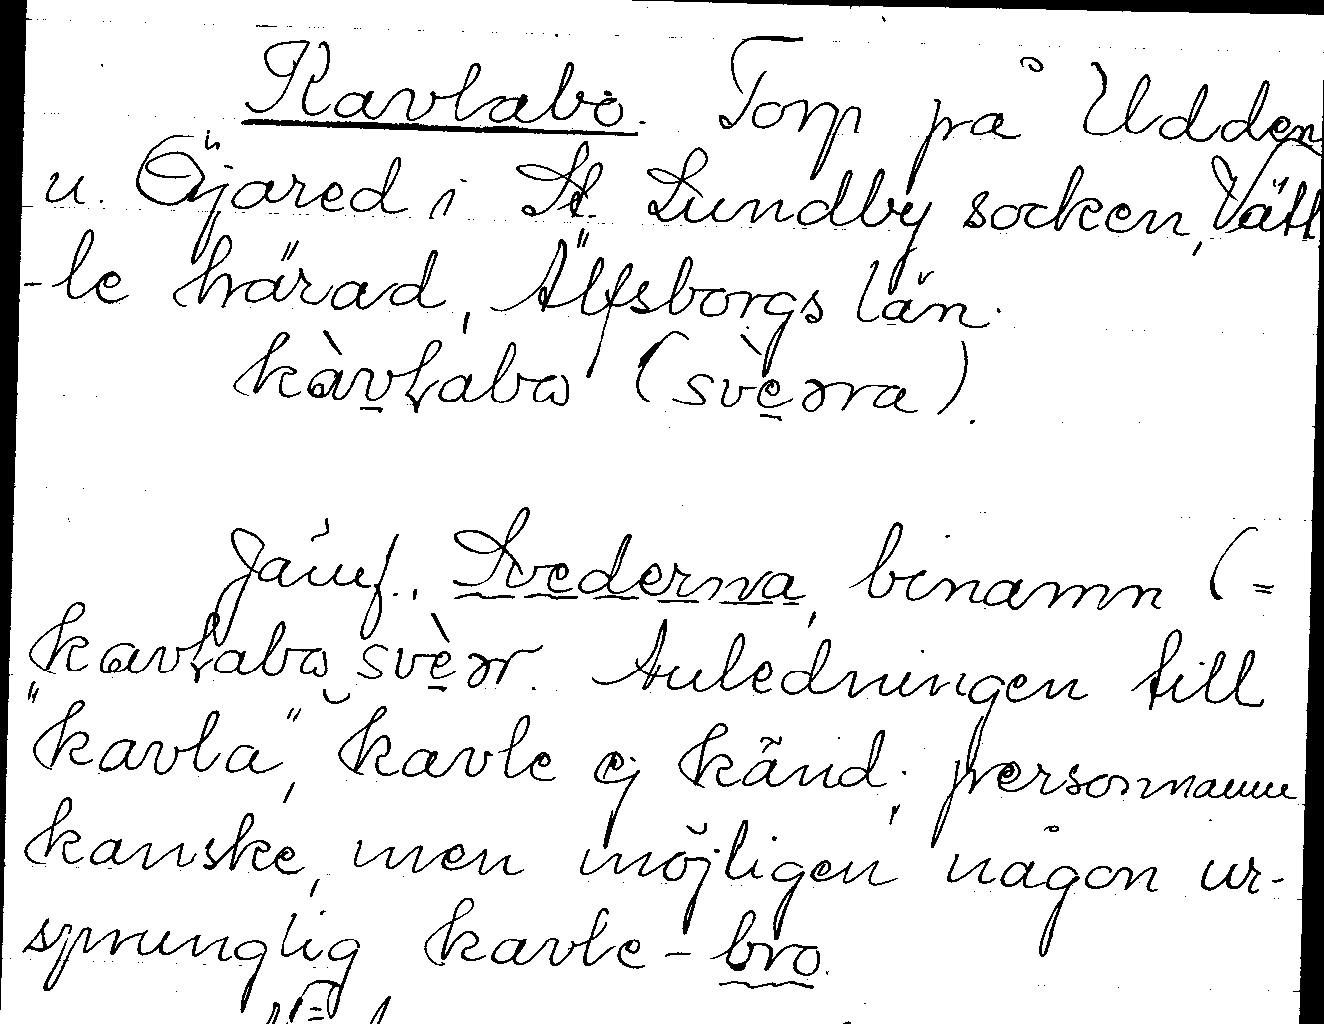 Kavlabo. Torp på Udden
u. Öjared i St. Lundby socken, Vätt
-le härad, Älfsborgs län.
kàvłabω (svèərra).
Jämf. Svederna, binamn (=
kavłabω svèər. Anledningen till
"kavla", kavle ej känd; personnamn
kanske, men möjligen någon ur-
sprunglig kavle-bro.